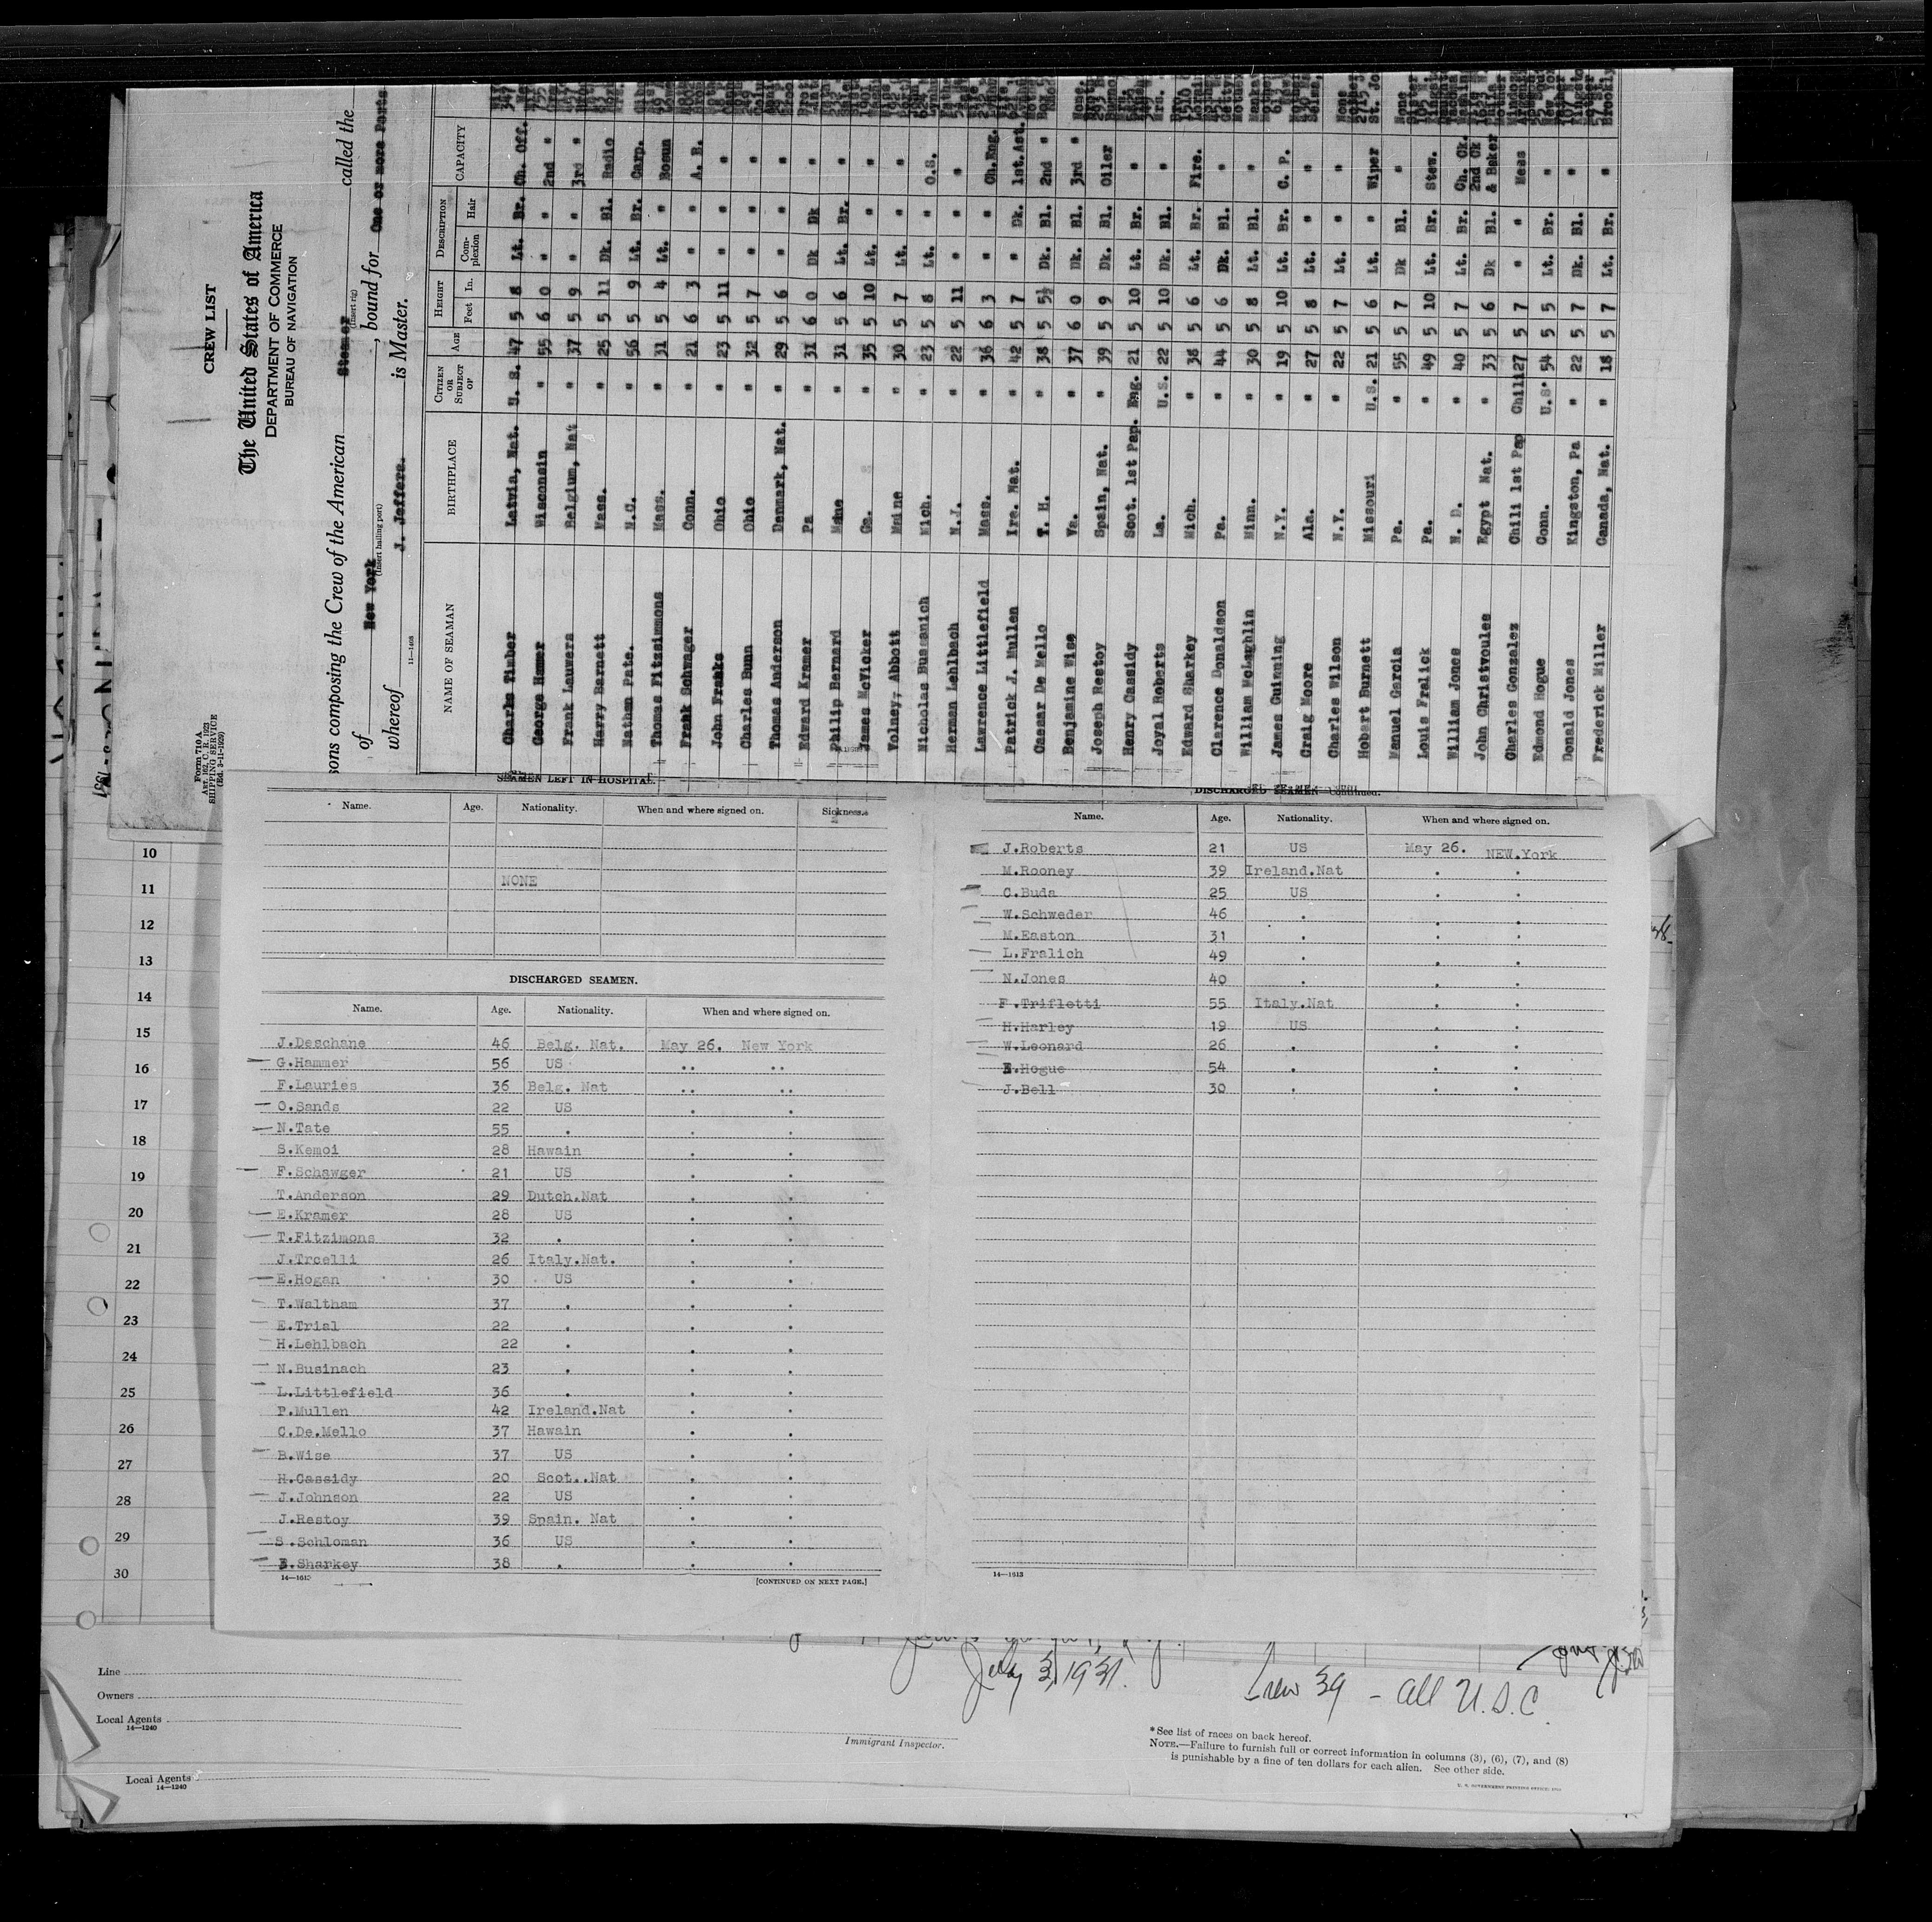 CREW LIST
The United States of America
DEPARTMENT OF COMMERCE
BUREAU OF NAVIGATION
Form 710 A
Art. 162, C. R. 1923
SHIPPING SERVICE
(Ed. 3-1-1929)
sons composing the Crew of the American Steamer called the
(Insert rig)
of New York, bound for One or more Ports
(Insert hailing port)
whereof J. Jeffers. is Master.
11—1408
NAME OF SEAMAN BIRTHPLACE CITIZEN OR SUBJECT OF AGE HEIGHT Feet In. DESCRIPTION Com-plexion Hair CAPACITY
Charles Timber Latvia, Nat. U. S. 47 5 8 Lt. Br. Ch. Off.
George Hammer Wisconsin " 55 6 0 " " 2nd "
Frank Lauwers Belgium, Nat " 37 5 9 " " 3rd "
Harry Barnett Mass. " 25 5 11 Dk. Bl. Radio
Nathan Pate. N.C. " 56 5 9 Lt. Br. Carp.
Thomas Fitzsimmons Mass. " 31 5 4 Lt. " Bosun
Frank Schwager Conn. " 21 6 3 " " A. B.
John Franks Ohio " 23 5 11 " " "
Charles Bunn Ohio " 32 5 7 " " "
Thomas Anderson Denmark, Nat. " 29 5 6 " " "
Edward Kramer Pa " 31 6 0 Dk Dk "
Philip Bernard Mane " 31 5 6 Lt. Br. "
James McVicker Ga. " 35 5 10 Lt. " "
Volney Abbott Maine " 30 5 7 Lt. " "
Nicholas Bussanich Mich. " 23 5 8 Lt. " O.S.
Herman Lehlbach N.J. " 22 5 11 " " "
Lawrence Littlefield Mass. " 36 6 3 " " Ch.Eng.
Patrick J. Mullen Ire. Nat. " 42 5 7 " Dk. 1st.Ast.
Caesar De Mello T. H. " 38 5 5½ Dk. Bl. 2nd "
Benjamine Wise Va. " 37 6 0 Dk. Bl. 3rd "
Joseph Restoy Spain, Nat. " 39 5 9 Dk. Bl. Oiler
Henry Cassidy Scot. 1st Pap. Eng. 21 5 10 Lt. Br. "
Joyal Roberts La. U.S. 22 5 10 Dk. Bl. "
Edward Sharkey Mich. " 38 5 6 Lt. Br. Fire.
Clarence Donaldson Pa. " 44 5 6 Dk. Bl. "
William McLaghlin Minn. " 30 5 8 Lt. Bl. "
James Guinning N.Y. " 19 5 10 Lt. Br. C. P.
Craig Moore Ala. " 27 5 8 Lt. " "
Charles Wilson N.Y. " 22 5 7 Lt. " "
Hobart Burnett Missouri U.S. 21 5 6 Lt. " Wiper
Manuel Garcia Pa. " 55 5 7 Dk Bl. "
Louis Fralick Pa. " 49 5 10 Lt. Br. Stew.
William Jones N. D. " 40 5 7 Lt. Br. Ch. Ck.
John Christvoules Egypt Nat. " 33 5 6 Dk Bl. 2nd Ck & Baker
Charles Gonzalez Chili 1st Pap Chili 27 5 7 " " Mess
Edmond Hogue Conn. U.S. 54 5 5 Lt. Br. "
Donald Jones Kingston, Pa " 22 5 7 Dk. Bl. "
Frederick Miller Canada, Nat. " 18 5 7 Lt. Br. "
SEAMEN LEFT IN HOSPITAL.
Name. Age. Nationality. When and where signed on. Sickness.
NONE
DISCHARGED SEAMEN.
Name. Age. Nationality. When and where signed on.
J.Deschane 46 Belg. Nat. May 26. New York
G.Hammer 56 US .. ..
F.Lauries 36 Belg. Nat .. ..
O.Sands 22 US . .
N.Tate 55 . . .
S.Kemoi 28 Hawain . .
F.Schawger 21 US . .
T.Anderson 29 Dutch.Nat . .
E.Kramer 28 US . .
T.Fitzimons 32 . . .
J.Trcelli 26 Italy.Nat. . .
E.Hogan 30 US . .
T.Waltham 37 . . .
E.Trial 22 . . .
H.Lehlbach 22 . . .
N.Businach 23 . . .
L.Littlefield 36 . . .
P.Mullen 42 Ireland.Nat . .
C.De.Mello 37 Hawain . .
B.Wise 37 US . .
H.Cassidy 20 Scot..Nat . .
J.Johnson 22 US . .
J.Restoy 39 Spain. Nat . .
S.Schloman 36 US . .
E.Sharkey 38 . . .
14—1613 [CONTINUED ON NEXT PAGE.]
DISCHARGED SEAMEN—Continued.
Name. Age. Nationality. When and where signed on.
J.Roberts 21 US May 26. NEW.York
M.Rooney 39 Ireland.Nat . .
C.Buda 25 US . .
W.Schweder 46 . . .
M.Easton 31 . . .
L.Fralich 49 . . .
N.Jones 40 . . .
F.Trifletti 55 Italy.Nat . .
H.Harley 19 US . .
W.Leonard 26 . . .
E.Hogue 54 . . .
J.Bell 30 . . .
14—1613
10
11
12
13
14
15
16
17
18
19
20
21
22
23
24
25
26
27
28
29
30
July 3, 1931.
Crew 39 – all U.S.C.
Line
Owners
Local Agents
14—1240
Immigrant Inspector.
*See list of races on back hereof.
NOTE.—Failure to furnish full or correct information in columns (3), (6), (7), and (8)
is punishable by a fine of ten dollars for each alien. See other side.
U. S. GOVERNMENT PRINTING OFFICE
Local Agents
14—1240